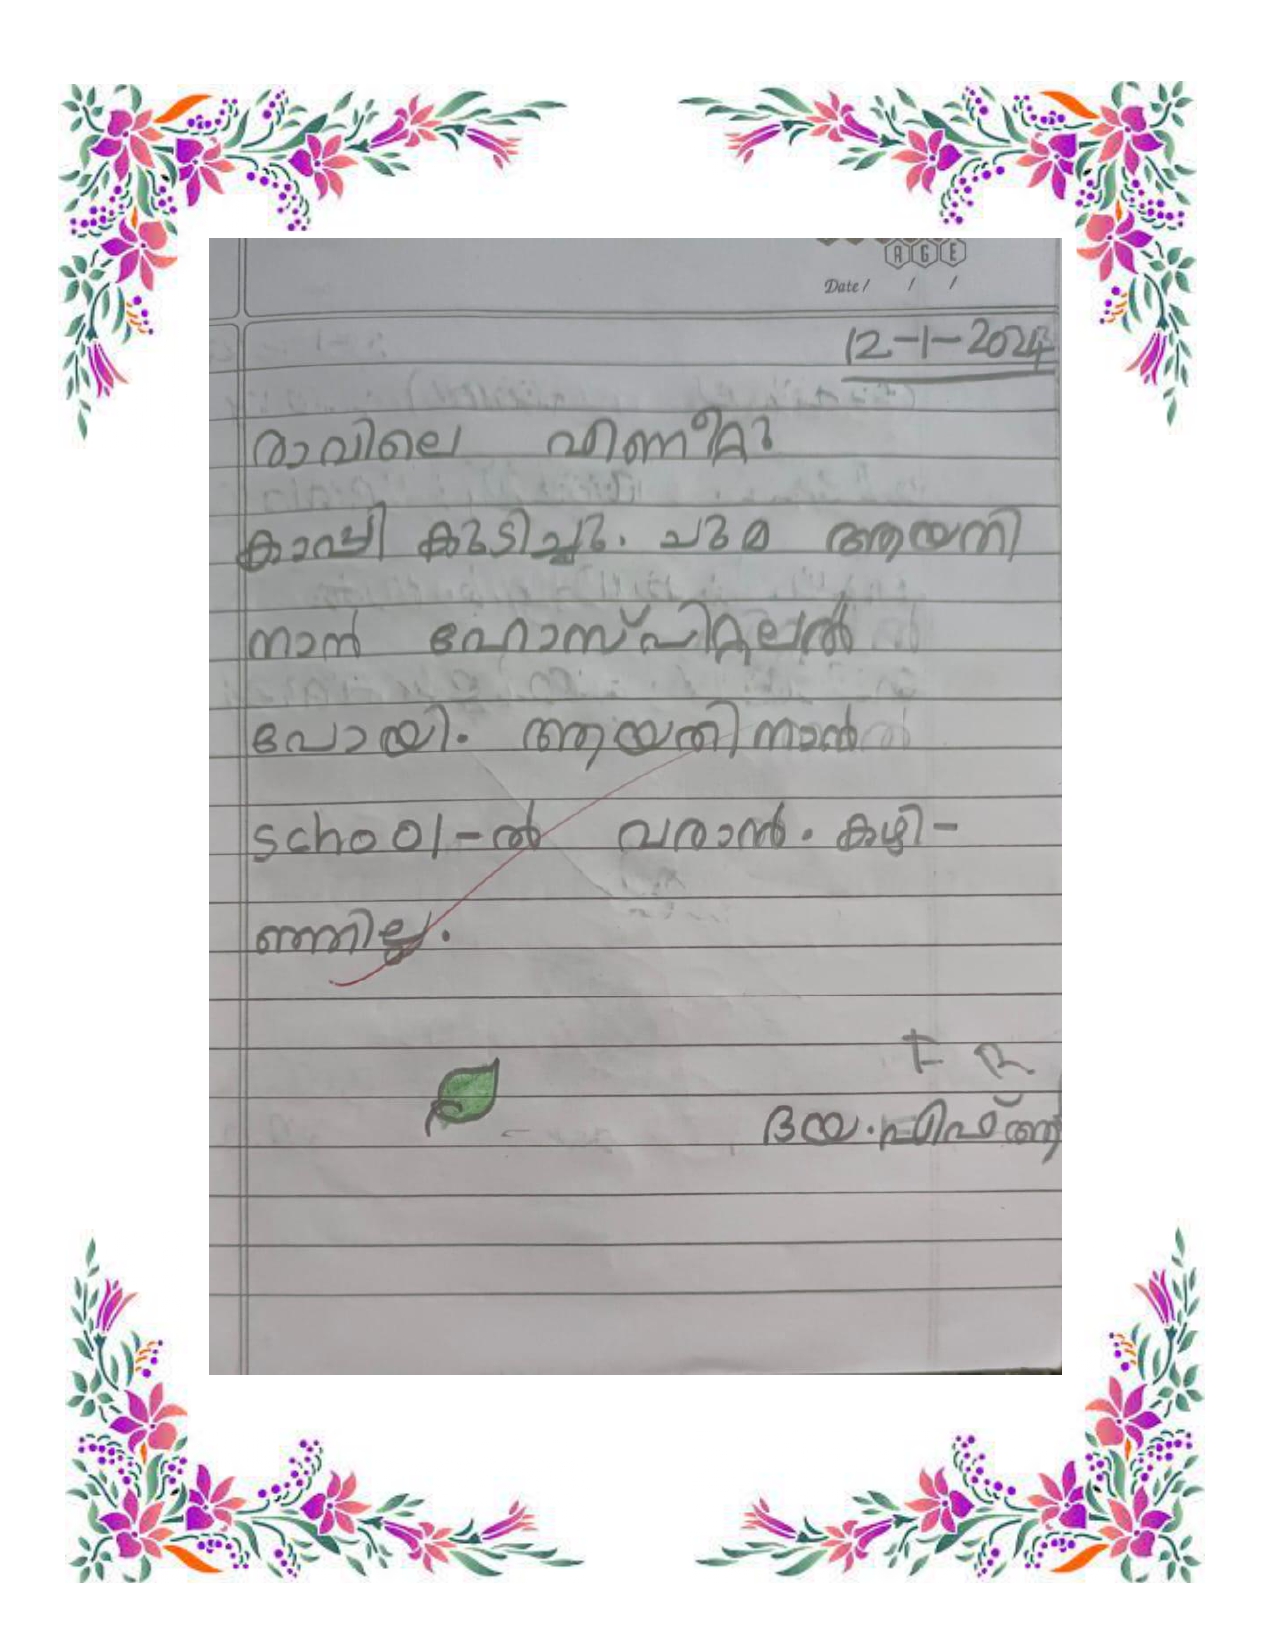 RGE
Date / / /
12-1-2024
രാവിലെ എണീറ്റു
കാപ്പി കുടിച്ചു. ചുമ ആയതി
നാൻ ഹോസ്പിറ്റലൽ
പോയി. ആയതിനാൻ
school-ൽ വരാൻ. കഴി-
ഞ്ഞില്ല.
ദയ.